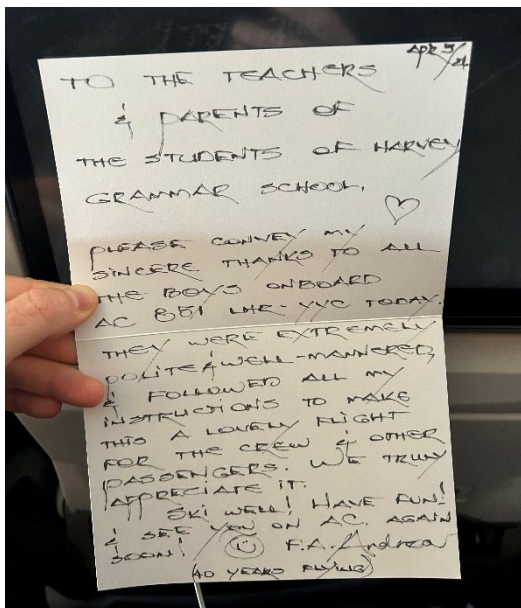 APR 3/24
TO THE TEACHERS
& PARENTS OF
THE STUDENTS OF HARVEY
GRAMMAR SCHOOL,
PLEASE CONVEY MY
SINCERE THANKS TO ALL
THE BOYS ONBOARD
AC 851 LHR-YYC TODAY.
THEY WERE EXTREMELY
POLITE & WELL-MANNERED,
& FOLLOWED ALL MY
INSTRUCTIONS TO MAKE
THIS A LOVELY FLIGHT
FOR THE CREW & OTHER
PASSENGERS. WE TRULY
APPRECIATE IT.
SKI WELL! HAVE FUN!
& SEE YOU ON AC. AGAIN
SOON! F.A. Andrea
(40 YEARS FLYING)